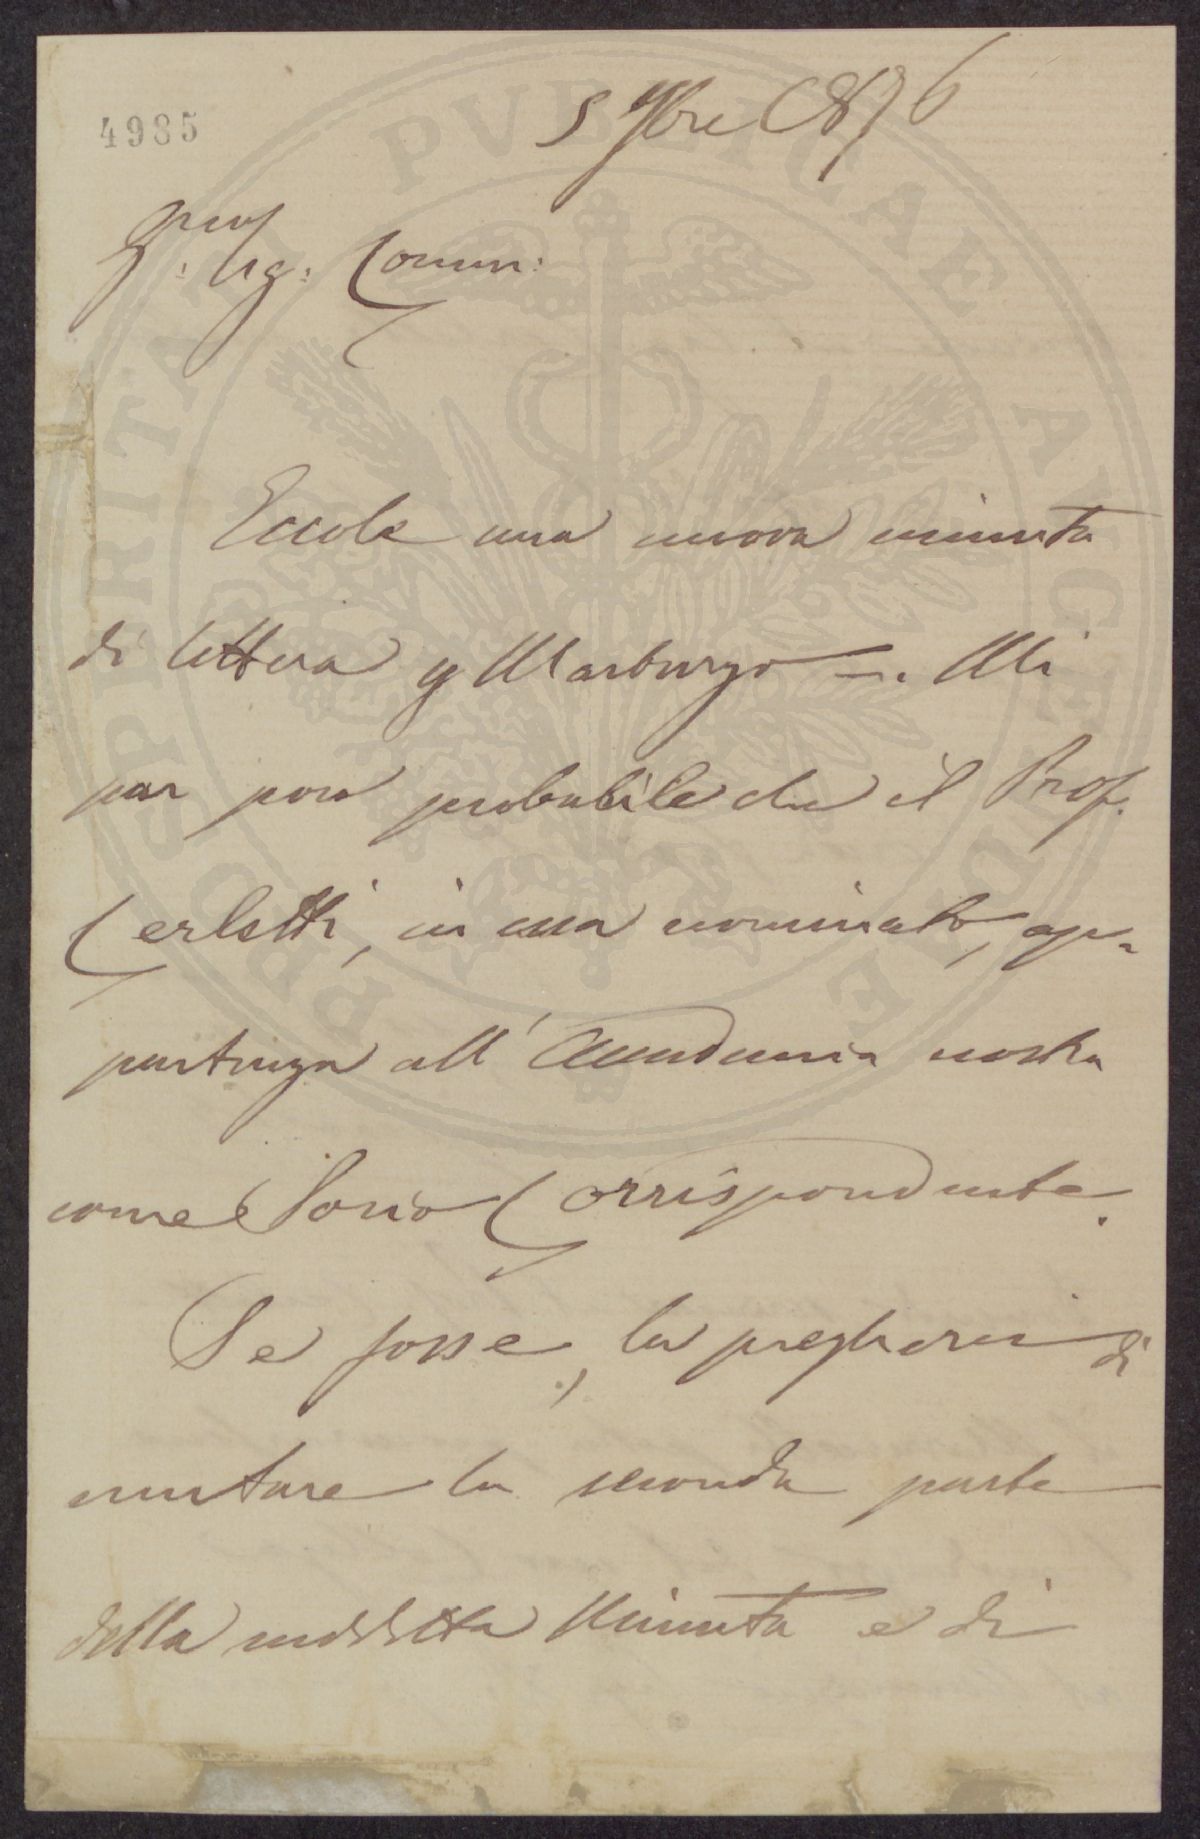 4985
5 7bre 1876
Preg. Sig. Comm:
Eccole una nuova minuta
di lettera p Marburgo =. Mi
par poco probabile che il Prof.
Cerletti, in essa nominato, ap-
partenga all'Accademia nostra
come Socio Corrispondente.
Se fosse, la pregherei di
mutare la seconda parte
della suddetta Minuta e di
PROSPERITATI PVBLICAE AVGENDAE